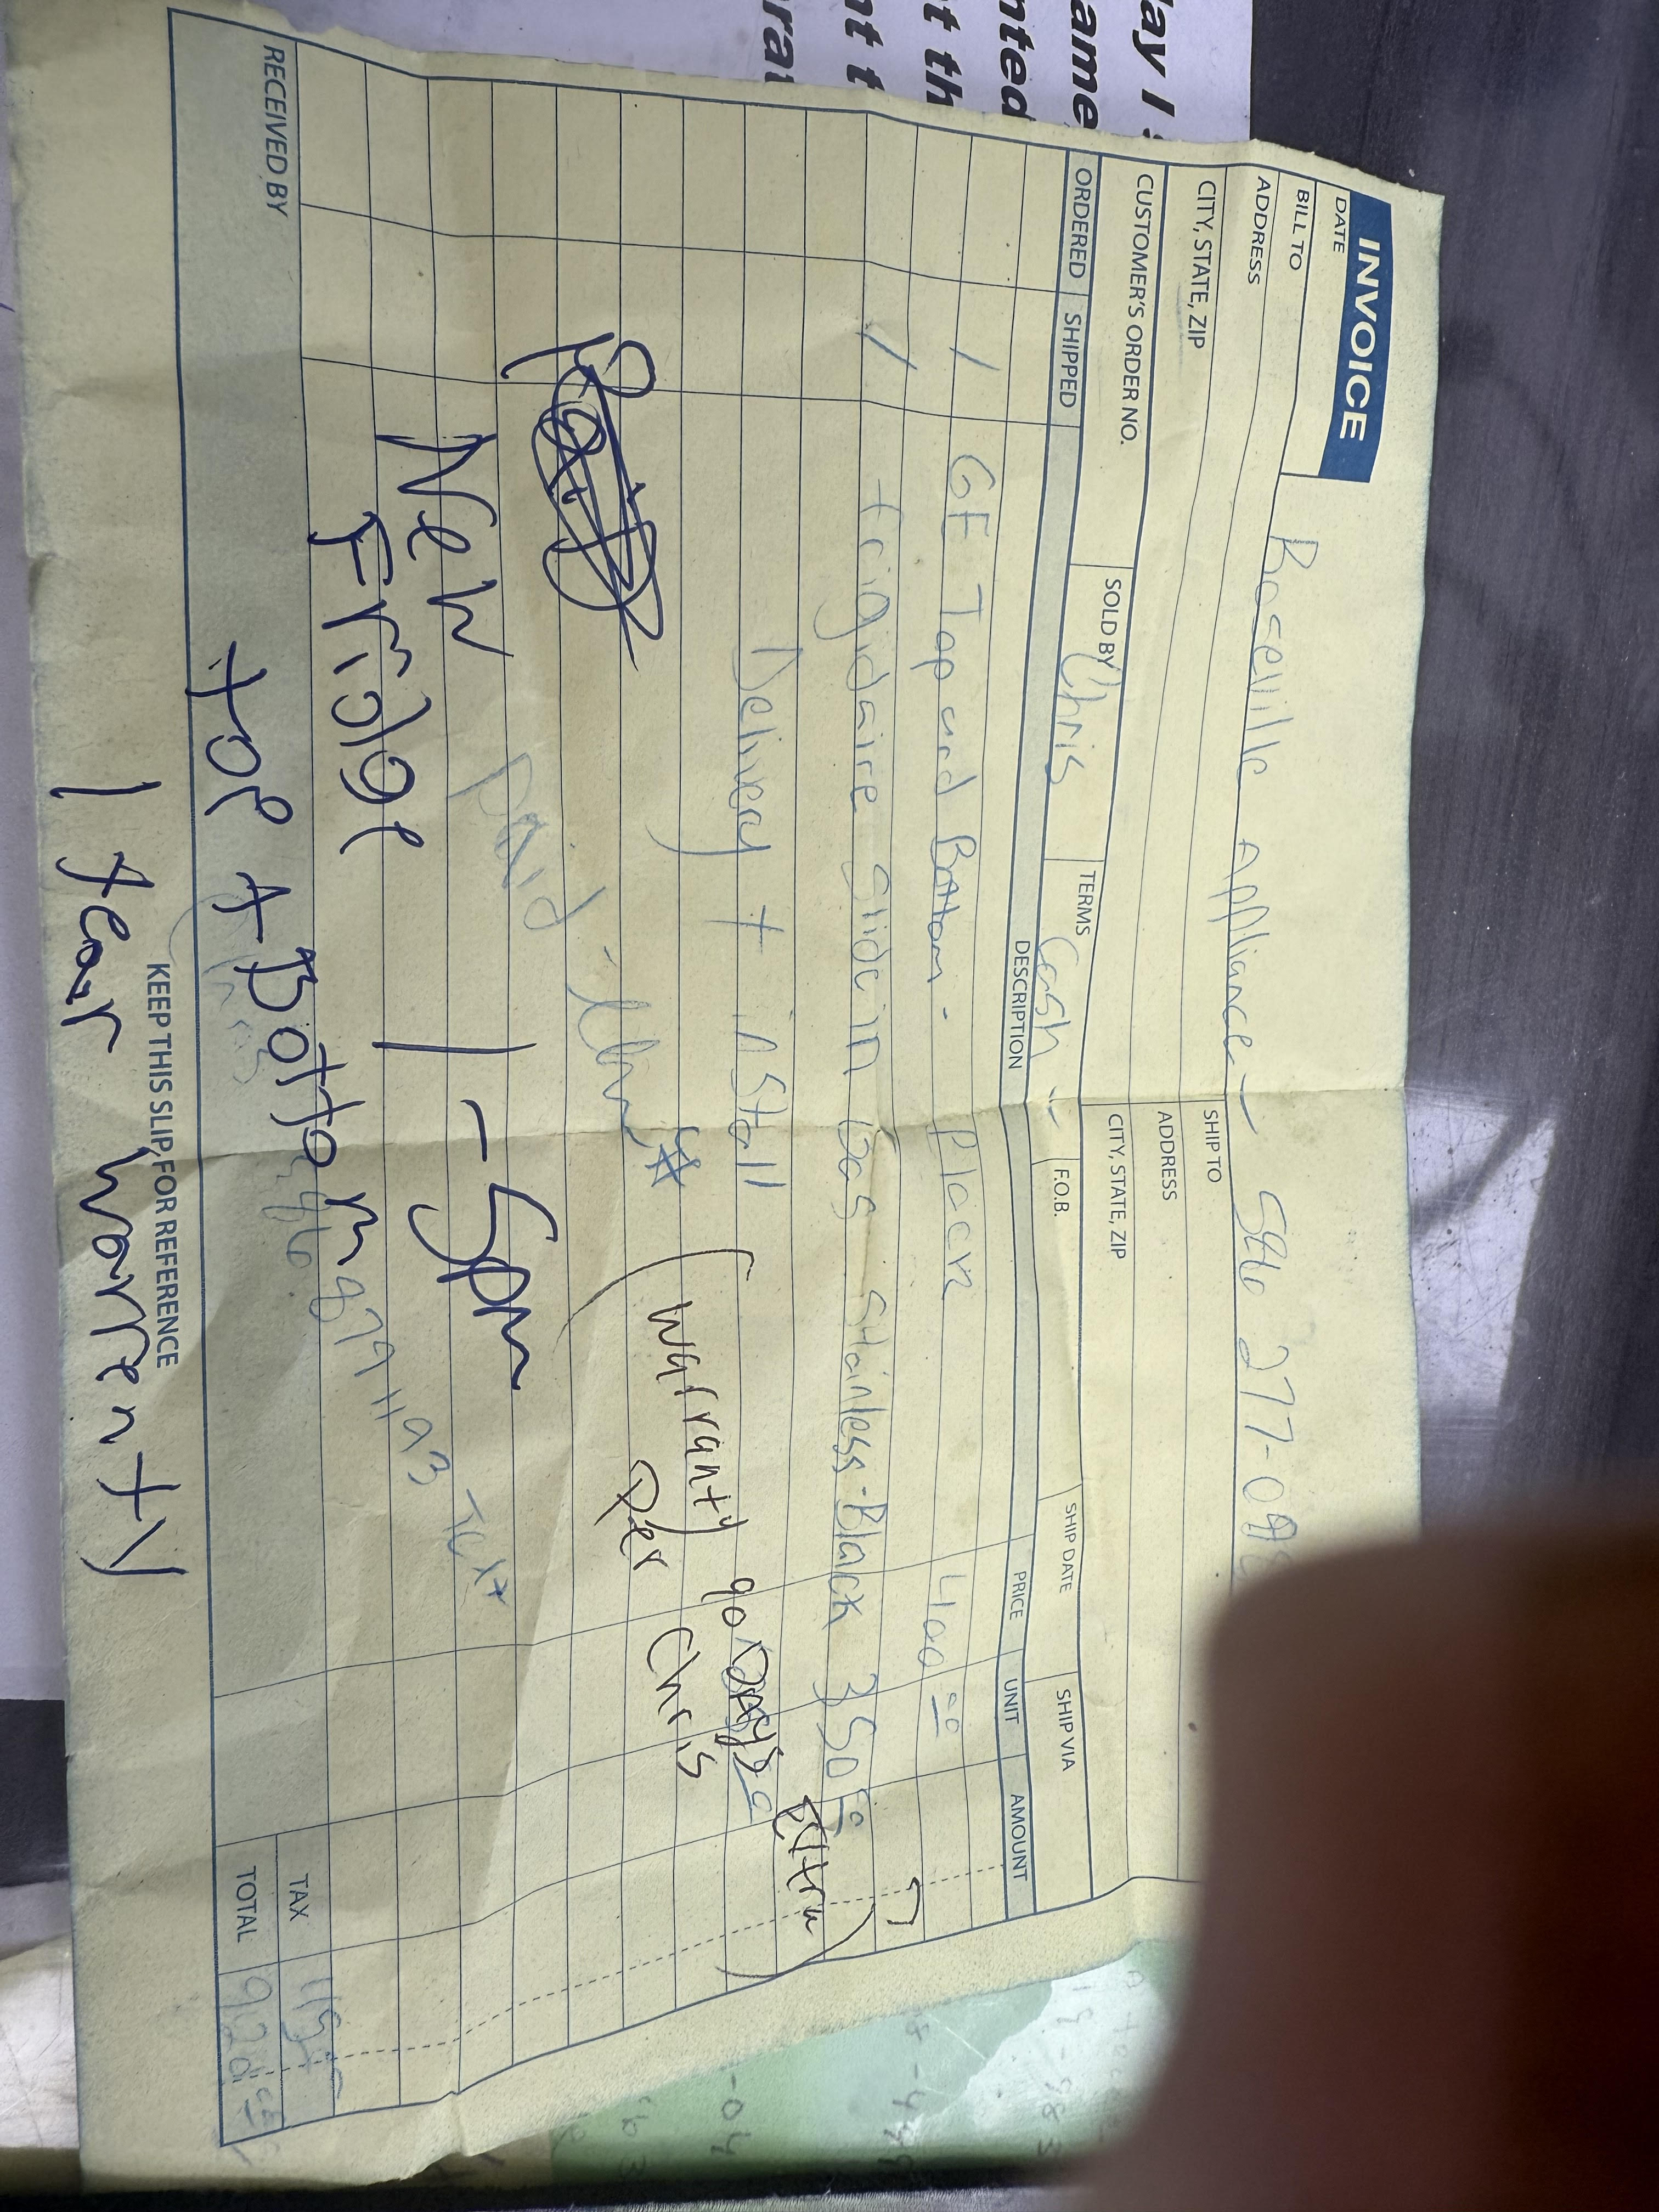 INVOICE
DATE
BILL TO
Roseville Appliance - 586 277-09
ADDRESS
CITY, STATE, ZIP
SHIP TO
ADDRESS
CITY, STATE, ZIP
CUSTOMER'S ORDER NO.
SOLD BY Chris
TERMS Cash
F.O.B.
SHIP DATE
SHIP VIA
ORDERED SHIPPED DESCRIPTION PRICE UNIT AMOUNT
1 GE Top and Bottom - Black 400 00
1 frigidaire Slide in Gas Stainless-Black 350 00
Delivery + install
90 DAYS extra
(Warranty
Per Chris
)
paid
New 1-5pm
Fridge
top + Bottom
879 1193 Text
TAX
RECEIVED BY
TOTAL 920
KEEP THIS SLIP FOR REFERENCE
1 year warrenty
lay I
ame
nted
t th
nt t
rat